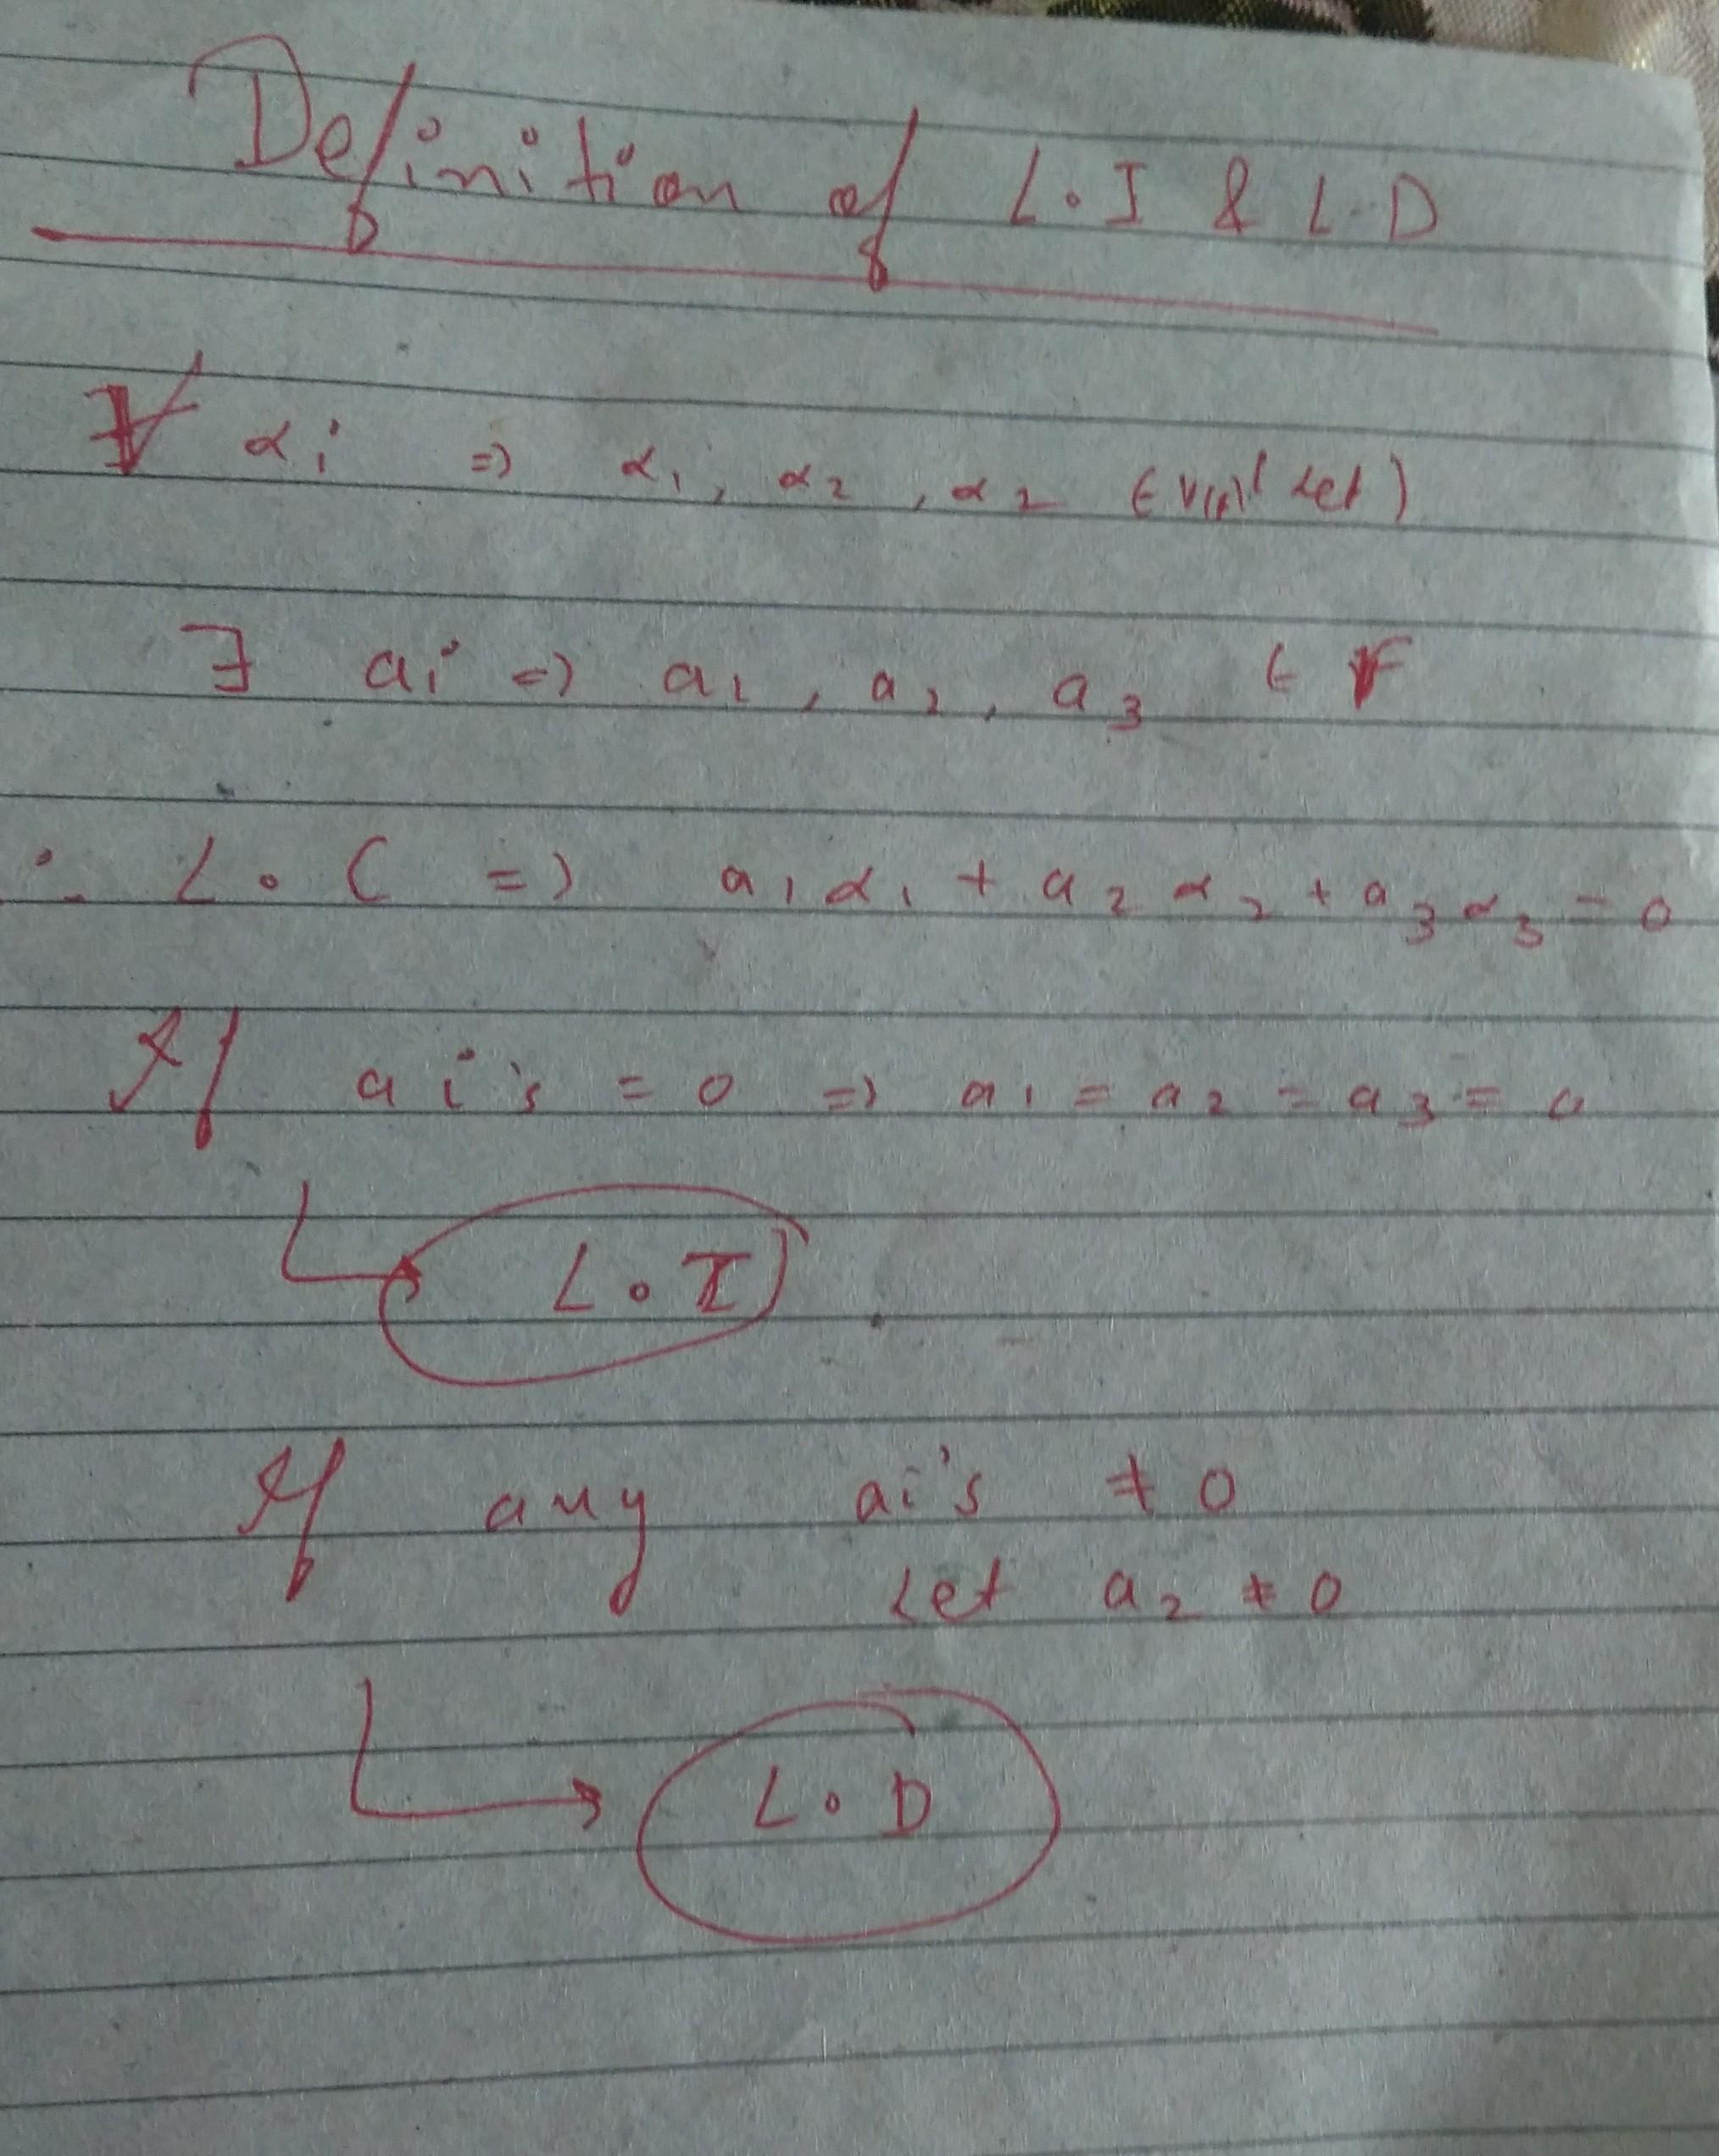 Definition of L.I & L.D
∀ αi ⇒ α1, α2, α2 ∈ V(F) (let)
∃ ai ⇒ a1, a2, a3 ∈ F
∴ L.C ⇒ a1α1 + a2α2 + a3α3 = 0
If ai's = 0 ⇒ a1 = a2 = a3 = 0
L.I
If any ai's ≠ 0
Let a2 ≠ 0
L.D